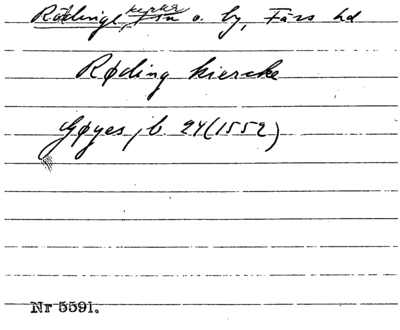 Rödinge, kyrka sn o. by, Färs hd
Røding kiercke
Gøyes jb 24 (1552)
Nr 5591.